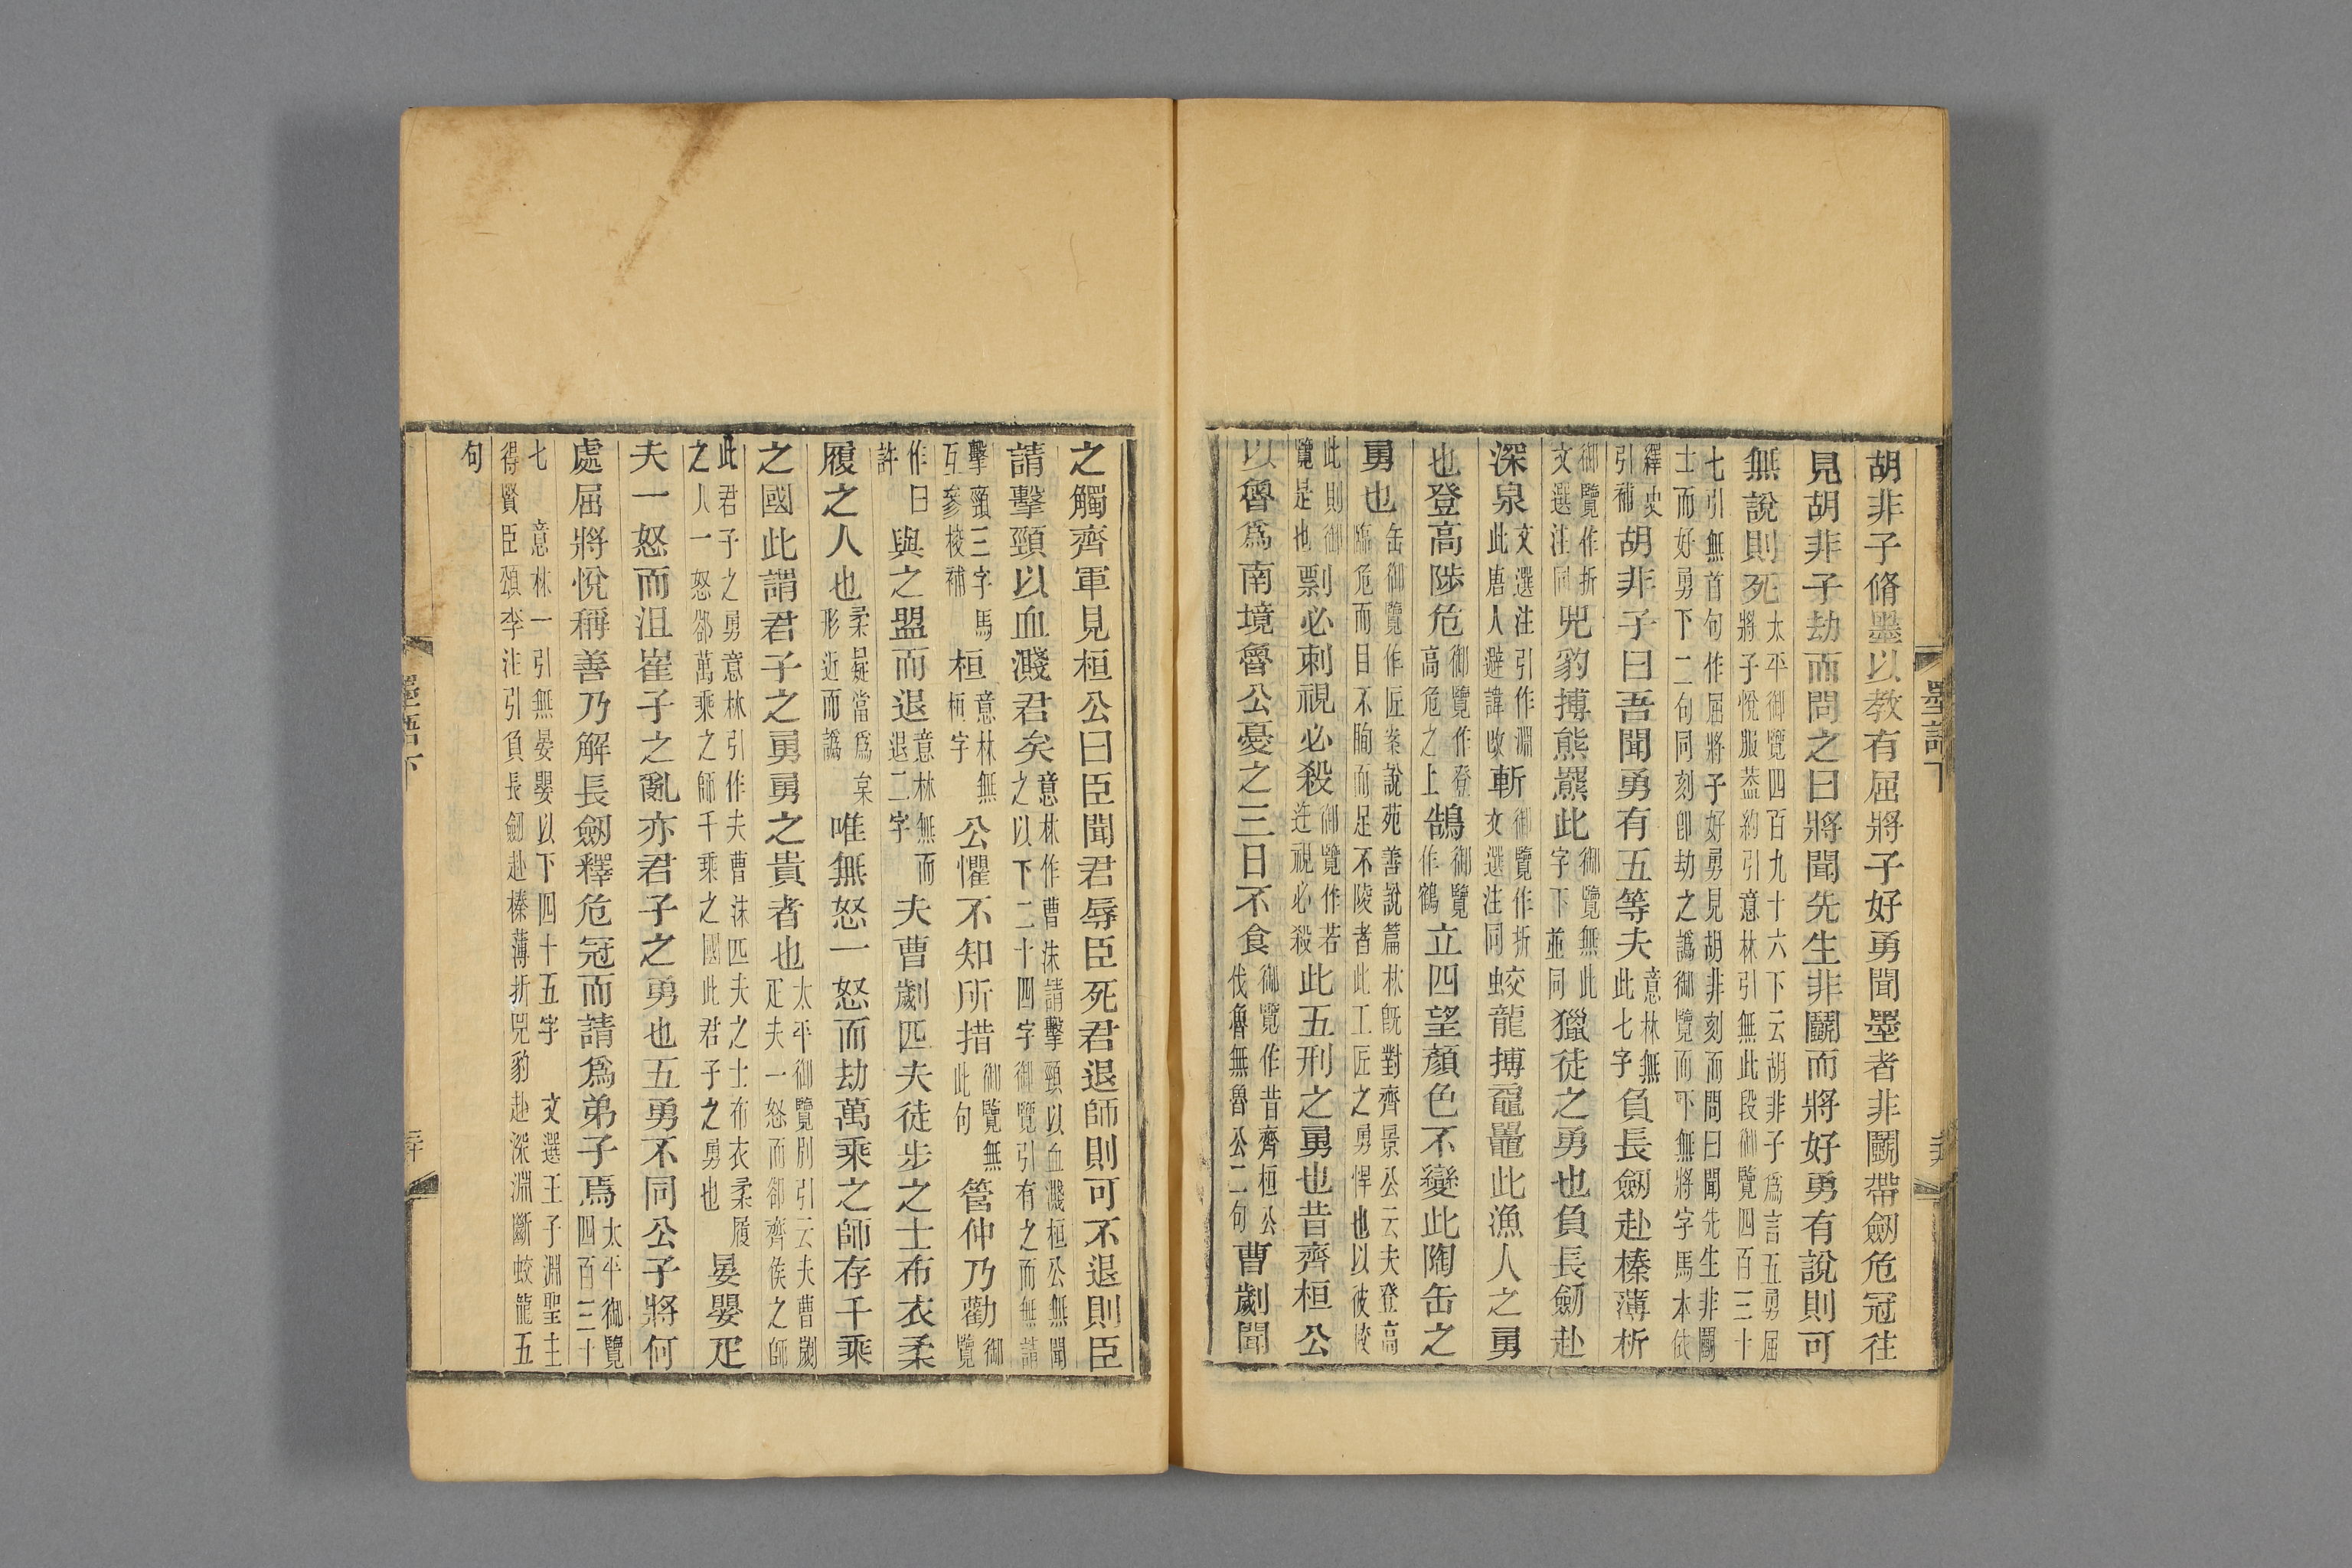 胡非子脩墨以教有屈將子好勇聞墨者非鬭帶劒危冠往
見胡非子劫而問之曰將聞先生非鬭而將好勇有說則可
無說則死太平御覽四百九十六下云胡非子爲言五勇屈將子悅服葢約引意林引無此段御覽四百三十
七引無首句作屈將子好勇見胡非刻而問曰聞先生非鬭士而好勇下二句同刻卽劫之譌御覽而下無將字馬本依
繹史引補胡非子曰吾聞勇有五等夫意林無此七字負長劒赴榛薄析
御覽作折文選注同兕豹搏熊羆此御覽無此字下並同獵徒之勇也負長劒赴
深泉文選注引作淵此唐人避諱改斬御覽作折文選注同蛟龍搏黿鼉此漁人之勇
也登高陟危御覽作登高危之上鵠御覽作鶴立四望顏色不變此陶缶之
勇也缶御覽作匠案說苑善說篇林旣對齊景公云夫登高臨危而目不眴而足不陵者此工匠之勇悍也以彼校
此則御覽是也剽必刺視必殺御覽作若迕視必殺此五刑之勇也昔齊桓公
以魯爲南境魯公憂之三日不食御覽作昔齊桓公伐魯無魯公二句曹劌聞
墨語下
之觸齊軍見桓公曰臣聞君辱臣死君退師則可不退則臣
請擊頸以血濺君矣意林作曹沫請擊頸以血濺桓公無聞之以下二十四字御覽引有之而無請
擊頸三字馬互參校補桓意林無桓字公懼不知所措御覽無此句管仲乃勸御覽
作曰許與之盟而退意林無而退二字夫曹劌匹夫徒步之士布衣柔
履之人也柔疑當爲枲形近而譌唯無怒一怒而劫萬乘之師存千乘
之國此謂君子之勇勇之貴者也太平御覽別引云夫曹劌疋夫一怒而卻齊侯之師
此君子之勇意林引作夫曹沫匹夫之士布衣柔履之人一怒卻萬乘之師千乘之國此君子之勇也晏嬰疋
夫一怒而沮崔子之亂亦君子之勇也五勇不同公子將何
處屈將悅稱善乃解長劒釋危冠而請爲弟子焉太平御覽四百三十
七意林一引無晏嬰以下四十五字文選王子淵聖主得賢臣頌李注引負長劒赴榛薄折兕豹赴深淵斷蛟龍五
句
墨語下